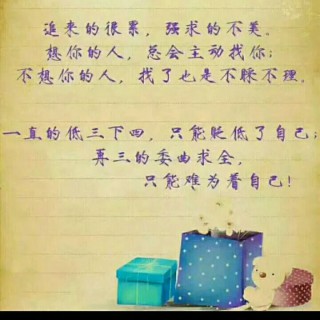 追来的很累，强求的不美。
想你的人，总会主动找你；
不想你的人，找了也是不睬不理。
一直的低三下四，只能贬低了自己；
再三的委曲求全，
只能难为着自己！